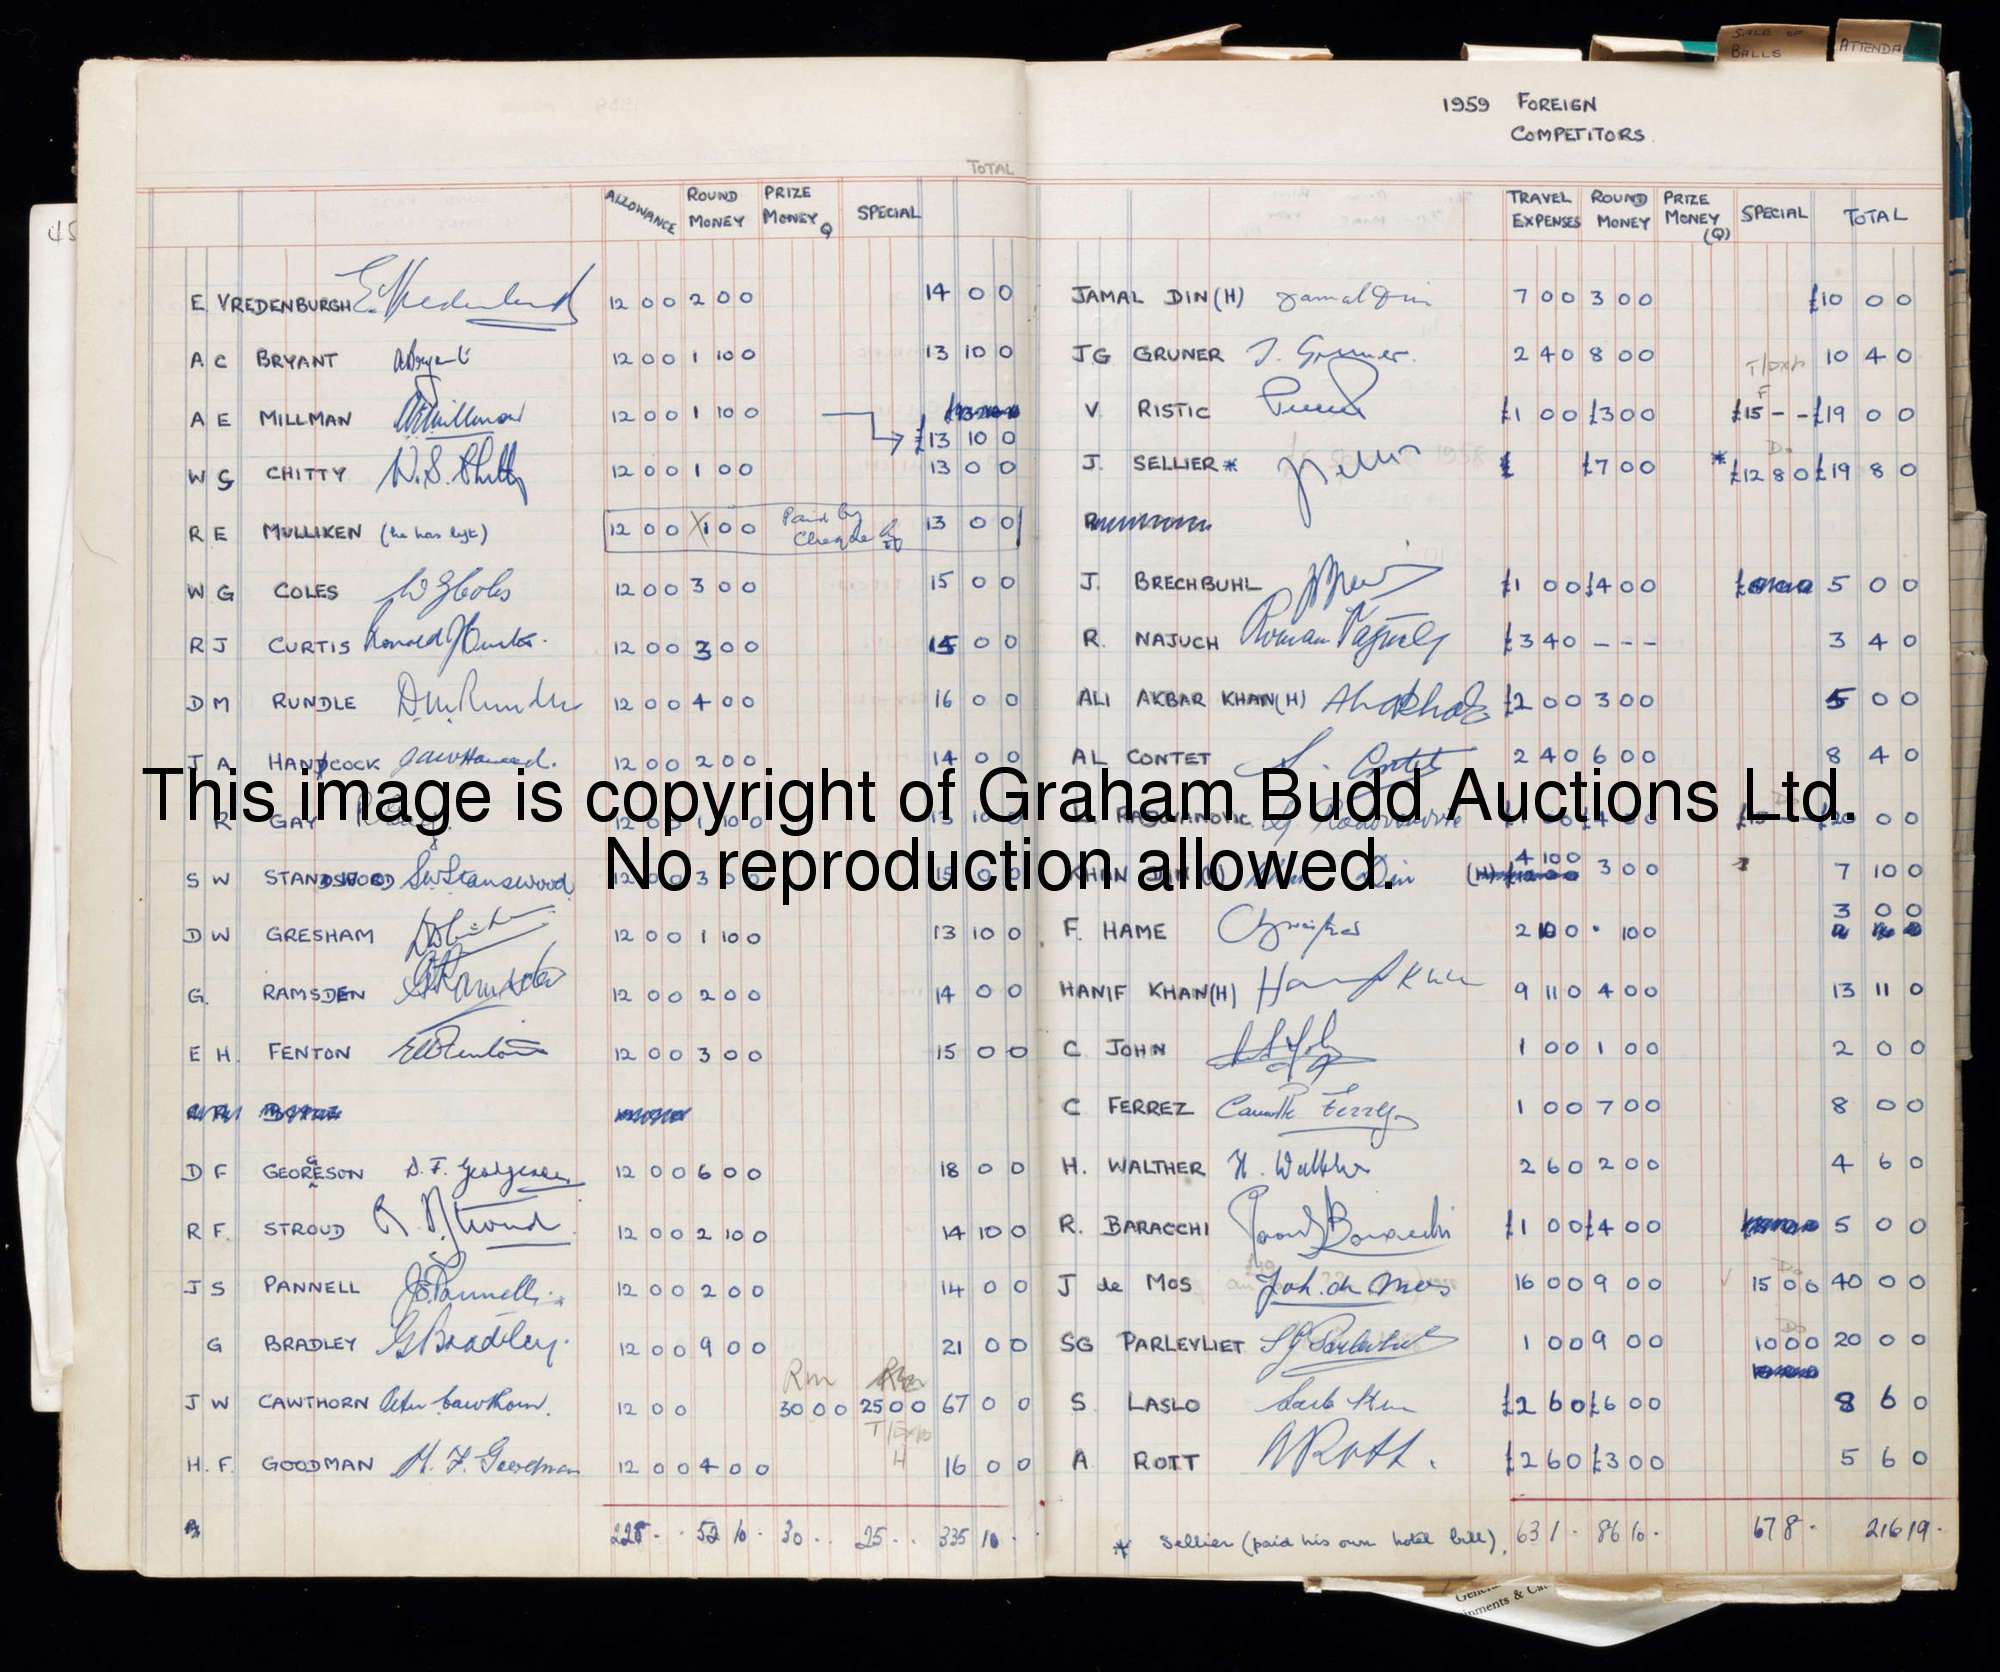 SALE OF
BALLS
ATTENDA
45
TOTAL
ALLOWANCE ROUND MONEY PRIZE MONEY Q SPECIAL
E VREDENBURGH 12 0 0 2 0 0 14 0 0
A C BRYANT ABryant 12 0 0 1 10 0 13 10 0
A E MILLMAN AEMillman 12 0 0 1 10 0
£13 10 0
W S CHITTY W.S. Chitty 12 0 0 1 0 0 13 0 0
R E MULLIKEN (he has left) 12 0 0 1 0 0 Paid by Cheque 13 0 0
W G COLES W G Coles 12 0 0 3 0 0 15 0 0
R J CURTIS Ronald J Curtis. 12 0 0 3 0 0 15 0 0
D M RUNDLE D.M. Rundle 12 0 0 4 0 0 16 0 0
J A HANDCOCK 12 0 0 2 0 0 14 0 0
R GAY 12 0 0 1 10 0 13 10 0
S W STANSWOOD SW Stanswood 12 0 0 3 0 0 15 0 0
D W GRESHAM 12 0 0 1 10 0 13 10 0
G. RAMSDEN G Ramsden 12 0 0 2 0 0 14 0 0
E H. FENTON EH Fenton 12 0 0 3 0 0 15 0 0
D F GEORGESON D. F. Georgeson 12 0 0 6 0 0 18 0 0
R F. STROUD R. F. Stroud 12 0 0 2 10 0 14 10 0
J S PANNELL JS Pannell. 12 0 0 2 0 0 14 0 0
G BRADLEY G Bradley. 12 0 0 9 0 0 21 0 0
Rm
J W CAWTHORN 12 0 0 30 0 0 25 0 0 67 0 0
H
H. F. GOODMAN H. F. Goodman 12 0 0 4 0 0 16 0 0
228 - - 52 10 - 30 - - 25 - - 335 10 -
1959 FOREIGN
COMPETITORS.
TRAVEL EXPENSES ROUND MONEY PRIZE MONEY (Q) SPECIAL TOTAL
JAMAL DIN (H) Jamal Din 7 0 0 3 0 0 £10 0 0
JG GRUNER J. Gruner. 2 4 0 8 0 0 10 4 0
V RISTIC £1 0 0 £3 0 0 £15 - - £19 0 0
J. SELLIER * £ £7 0 0 * £12 8 0 £19 8 0
J. BRECHBUHL £1 0 0 £4 0 0 5 0 0
R. NAJUCH Roman Najuch £3 4 0 - - - 3 4 0
ALI AKBAR KHAN (H) £2 0 0 3 0 0 5 0 0
AL CONTET 2 4 0 6 0 0 8 4 0
RADOVANOVIC £15 £20 0 0
KHAN DIN (H) Din (H) 4 10 0 3 0 0 7 10 0
F. HAME 2 10 0 10 0 3 0 0
HANIF KHAN (H) Hanif Khan 9 11 0 4 0 0 13 11 0
C JOHN 1 0 0 1 0 0 2 0 0
C FERREZ Camille Ferrez 1 0 0 7 0 0 8 0 0
H. WALTHER H. Walther 2 6 0 2 0 0 4 6 0
R. BARACCHI £1 0 0 £4 0 0 5 0 0
J de MOS Joh. de Mos 16 0 0 9 0 0 15 0 0 40 0 0
SG PARLEVLIET SG Parlevliet 1 0 0 9 0 0 10 0 0 20 0 0
S LASLO £2 6 0 £6 0 0 8 6 0
A ROTT A Rott. £2 6 0 £3 0 0 5 6 0
* Sellier (paid his own hotel bill). 63 1 - 86 10 - 67 8 - 216 19 -
This image is copyright of Graham Budd Auctions Ltd.
No reproduction allowed.